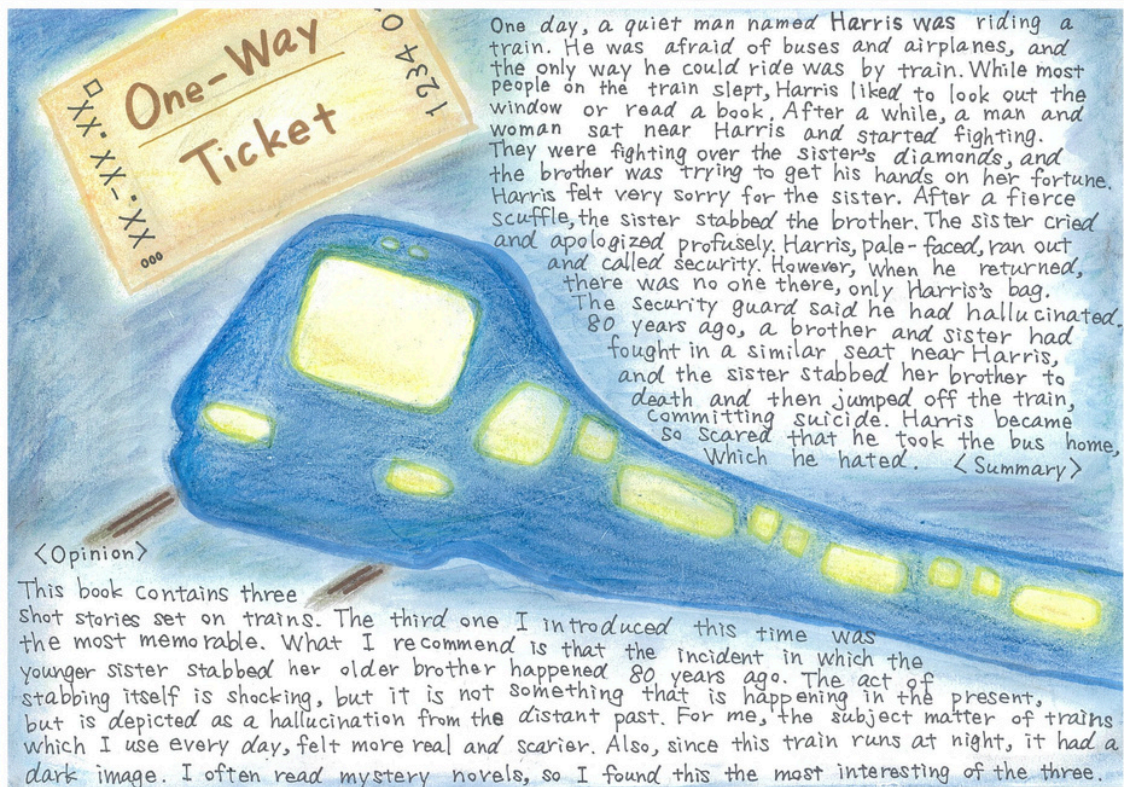 One-Way
Ticket
XX.XX-.XX.
000
1234 0
One day, a quiet man named Harris was riding a
train. He was afraid of buses and airplanes, and
the only way he could ride was by train. While most
people on the train slept, Harris liked to look out the
window or read a book. After a while, a man and
woman sat near Harris and started fighting.
They were fighting over the sister's diamonds, and
the brother was trying to get his hands on her fortune.
Harris felt very sorry for the sister. After a fierce
scuffle, the sister stabbed the brother. The sister cried
and apologized profusely. Harris, pale-faced, ran out
and called security. However, when he returned,
there was no one there, only Harris's bag.
The security guard said he had hallucinated.
80 years ago, a brother and sister had
fought in a similar seat near Harris,
and the sister stabbed her brother to
death and then jumped off the train,
committing suicide. Harris became
so scared that he took the bus home,
which he hated. <Summary>
<Opinion>
This book contains three
shot stories set on trains. The third one I introduced this time was
the most memorable. What I recommend is that the incident in which the
younger sister stabbed her older brother happened 80 years ago. The act of
stabbing itself is shocking, but it is not something that is happening in the present,
but is depicted as a hallucination from the distant past. For me, the subject matter of trains
which I use every day, felt more real and scarier. Also, since this train runs at night, it had a
dark image. I often read mystery novels, so I found this the most interesting of the three.